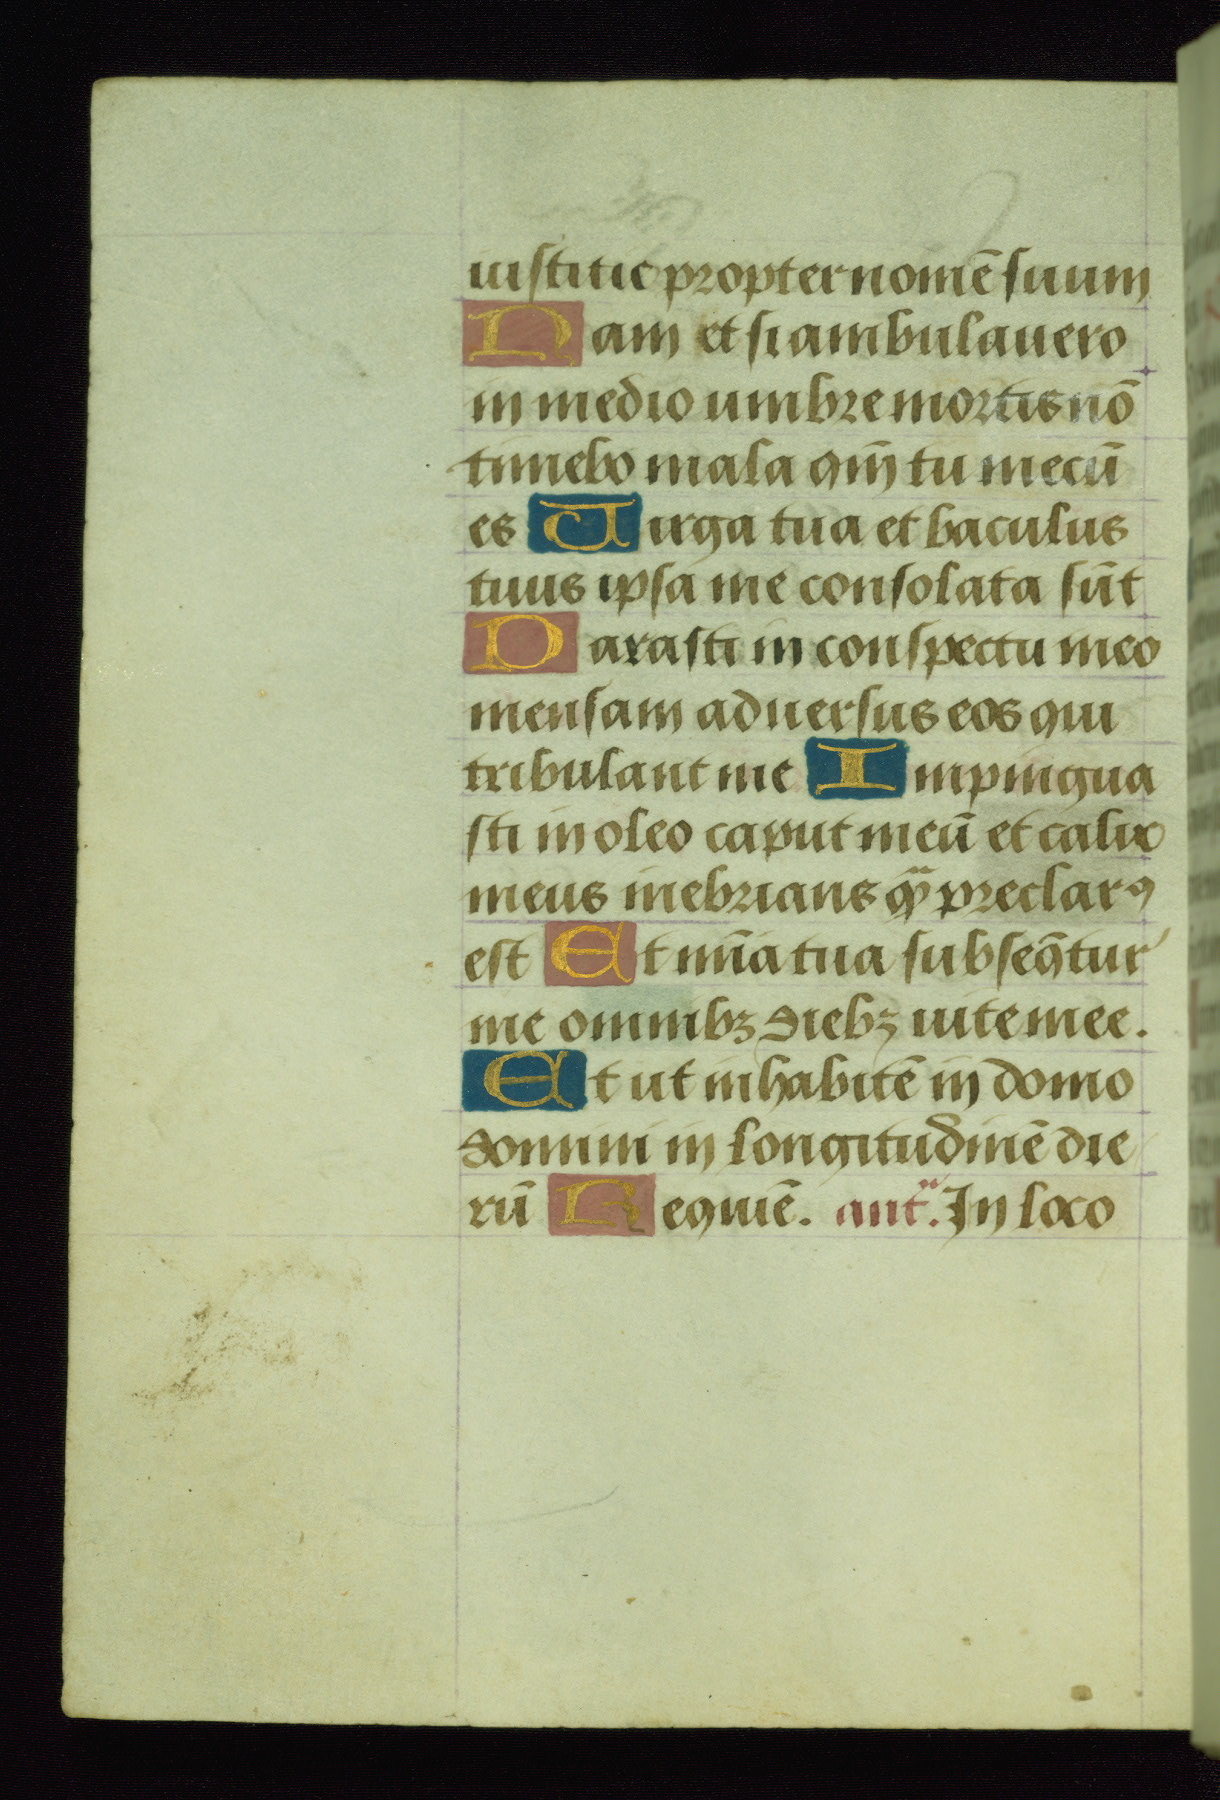 iustitie propter nomē suum
Nam et si ambulauero
in medio umbre mortis nō
timebo mala qm̄ tu mecū
es Uirga tua et baculus
tuus ipsa me consolata sūt
Parasti in conspectu meo
mensam aduersus eos qui
tribulant me Impingua
sti in oleo caput meū et calix
meus inebrians qͣ preclarꝯ
est Et mīa tua subseq̄tur
me omnibꝫ diebꝫ uite mee.
Et ut inhabitē in domo
domini in longitudinē die
rū Requiē. antͣ. In loco